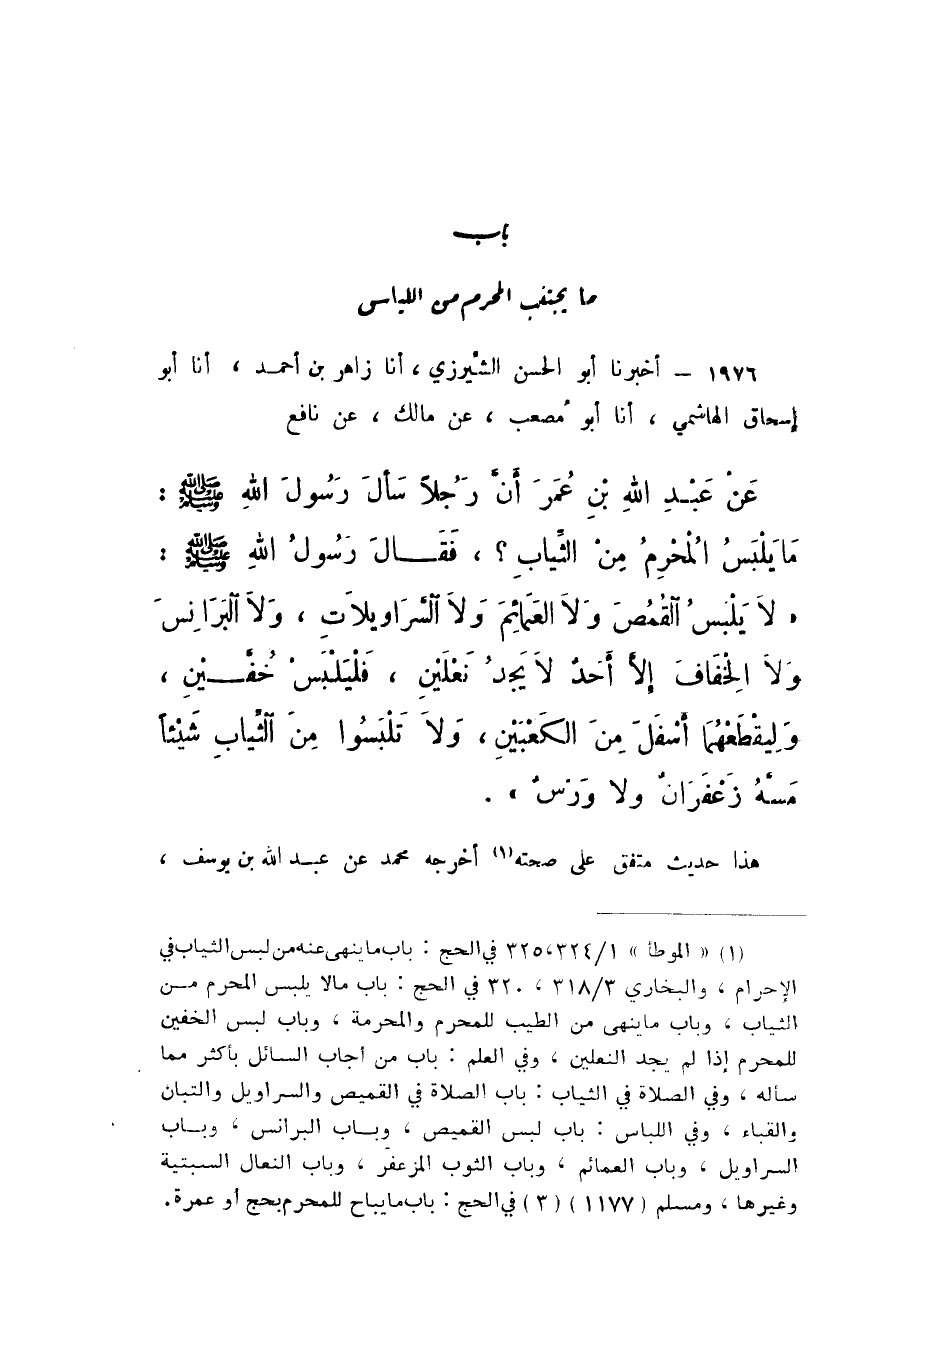 باب
ما يجتنب المحرم من اللباس
١٩٧٦ – أخبرنا أبو الحسن الشِّيرزي ، أنا زاهر بن أحمد ، أنا أبو
إسحاق الهاشمي ، أنا أبو مُصعب ، عن مالك ، عن نافع
عَنْ عَبْدِ اللهِ بْنِ عُمَرَ أَنَّ رَجُلاً سَأَلَ رَسُولَ اللهِ ﷺ :
مَا يَلْبَسُ الْمُحْرِمُ مِنْ الثِّيابِ ؟ ، فَقَالَ رَسُولُ اللهِ ﷺ :
« لاَ يَلْبَسُ القُمُصَ وَلاَ العَمَائِمَ وَلاَ السَّرَاوِيلاَتِ ، وَلاَ البَرَانِسَ
وَلاَ الِخْفَافَ إِلاَّ أَحَدٌ لاَ يَجِدُ نَعْلَيْنِ ، فَلْيَلْبَسْ خُفَّيْنِ ،
وَلِيقْطَعْهُمَا أَسْفَلَ مِنَ الكَعْبَيْنِ ، وَلاَ تَلْبَسُوا مِنَ الثِّيابِ شَيْئاً
مَسَّهُ زَعْفَرَانٌ ولا وَرْسٌ » .
هذا حديث متفق على صحته (١) أخرجه محمد عن عبد الله بن يوسف ،
(١) « الموطأ » ٣٢٤/١ ، ٣٢٥ في الحج : باب ما ينهى عنه من لبس الثياب في
الإحرام ، والبخاري ٣١٨/٣ ، ٣٢٠ في الحج : باب مالا يلبس المحرم من
الثياب ، وباب ماينهى من الطيب للمحرم والمحرمة ، وباب لبس الخفين
للمحرم إذا لم يجد النعلين ، وفي العلم : باب من أجاب السائل بأكثر مما
سأله ، وفي الصلاة في الثياب : باب الصلاة في القميص والسراويل والتبان
والقباء ، وفي اللباس : باب لبس القميص ، وباب البرانس ، وباب
السراويل ، وباب العمائم ، وباب الثوب المزعفر ، وباب النعال السبتية
وغيرها ، ومسلم ( ١١٧٧ ) ( ٣ ) في الحج : باب ما يباح للمحرم بحج أو عمرة .